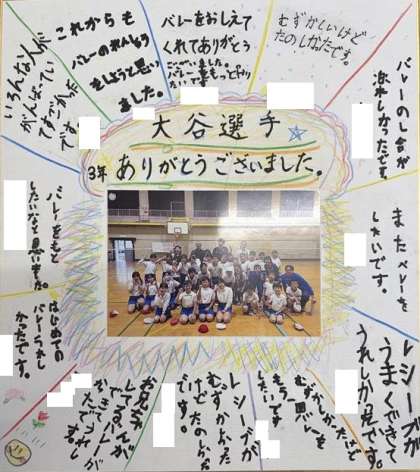 大谷選手
3年
ありがとうございました。
むずかしいけど
たのしかったです。
バレーのし合が
楽しかったです。
また バレーを
したいです。
レシーブが
うまくできて
うれしかったです。
むずかしかったけど
もう一回バレーを
したいです
レシーブが
むずかしかった
けどたのしかった
です。
お兄ちゃんが
はじめての
バレーうれし
かったです。
バレーをもっと
したいなと思いました。
いろんな人が
がんばってい
てすごかった
です。
これからも
バレーのれんしゅう
をしようと思い
ました。
バレーをおしえて
くれてありがとう
ございました。